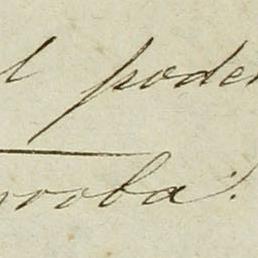 l poder
rroba: